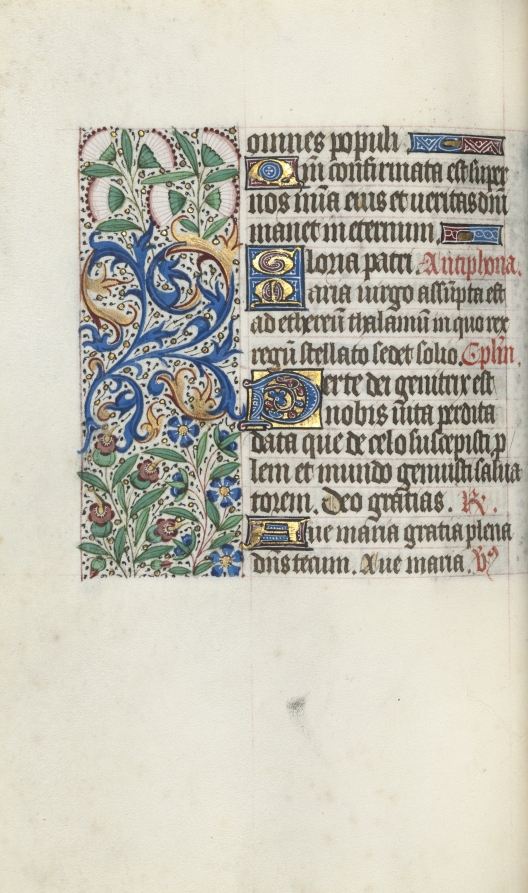 omnes populi
Qm̄ confirmata est super
nos mīa eius et ueritas dn̄i
manet in eternum
Gloria patri Antiphona.
Maria uirgo assūpta est
ad ethereū thalamū in quo rex
regū stellato sedet solio. Cplm̄.
Per te dei genitrix est
nobis uita perdita
data que de celo suscepisti p
lem et mundo genuisti salua
torem. Deo gratias. R.
Aue maria gratia plena
dn̄s tecum. Aue maria. V